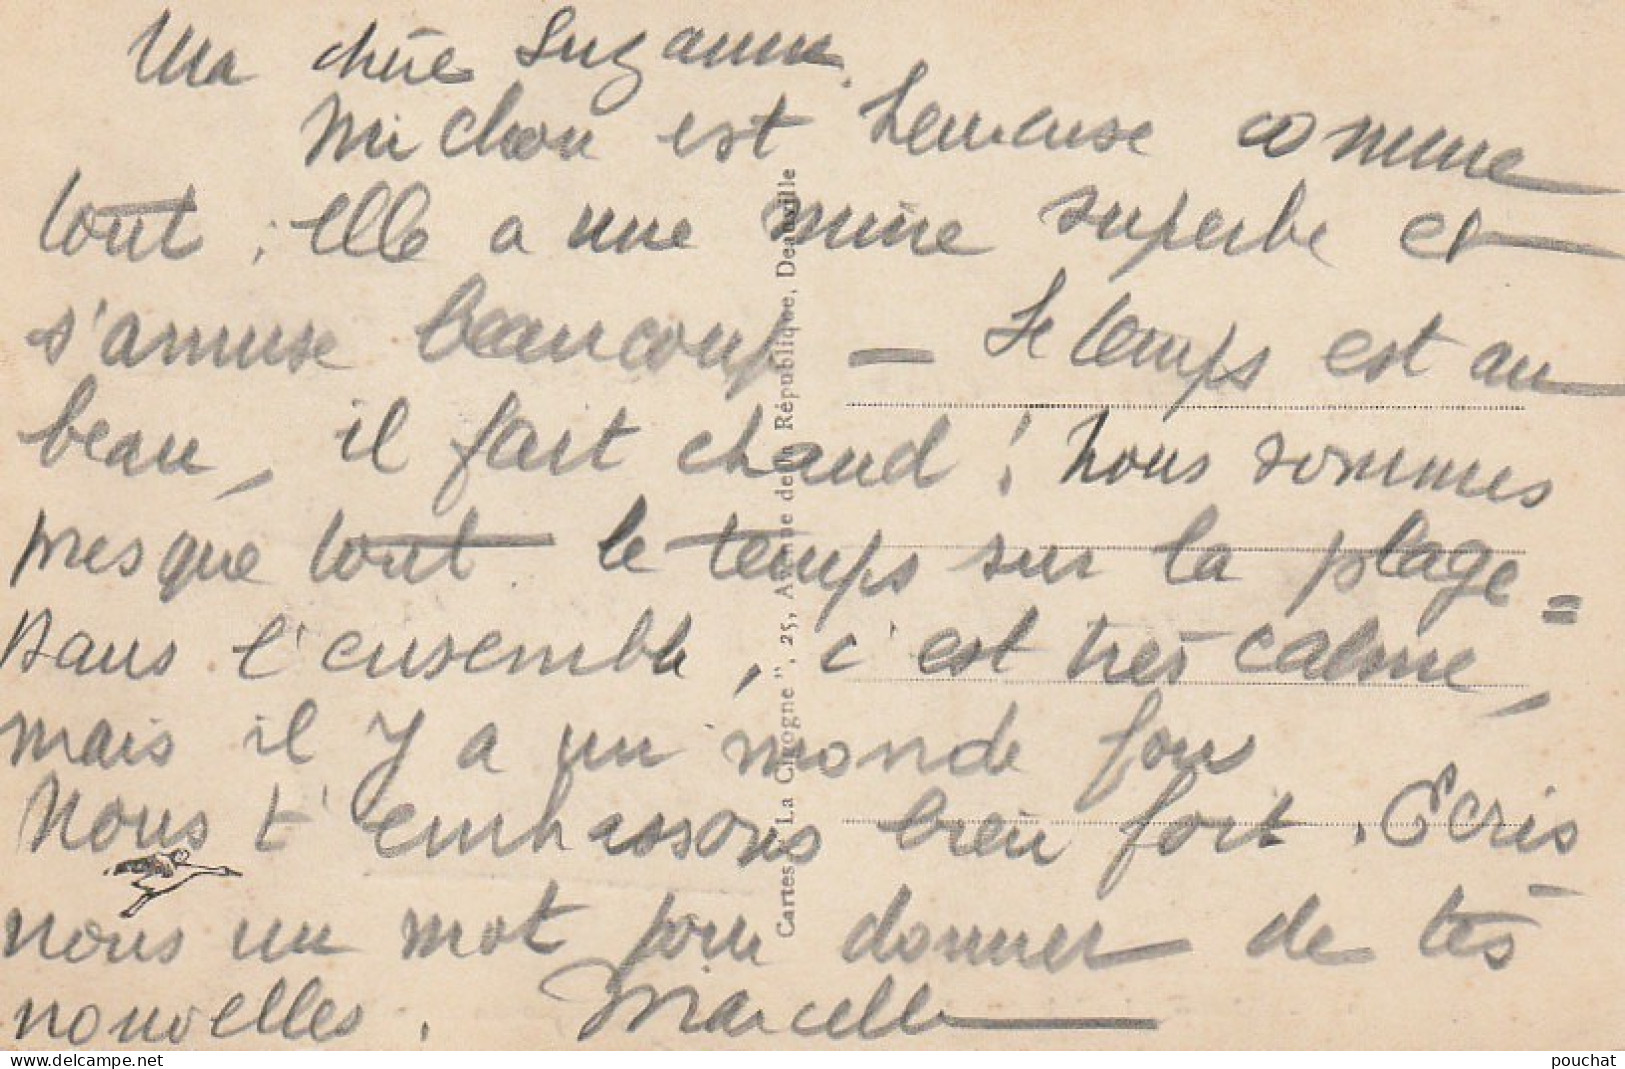 Ma chère Suzanne.
Michou est heureuse comme
tout ; elle a une mine superbe et
s'amuse beaucoup — Le temps est au
beau, il fait chaud ! Nous sommes
presque tout le temps sur la plage =
Dans l'ensemble, c'est très calme,
mais il y a un monde fou
Nous t'embrassons bien fort. Écris
nous un mot pour donner de tes
nouvelles. Marcelle
Cartes "La Cigogne", 25, Avenue de la République, Deauville
www.delcampe.net
pouchat